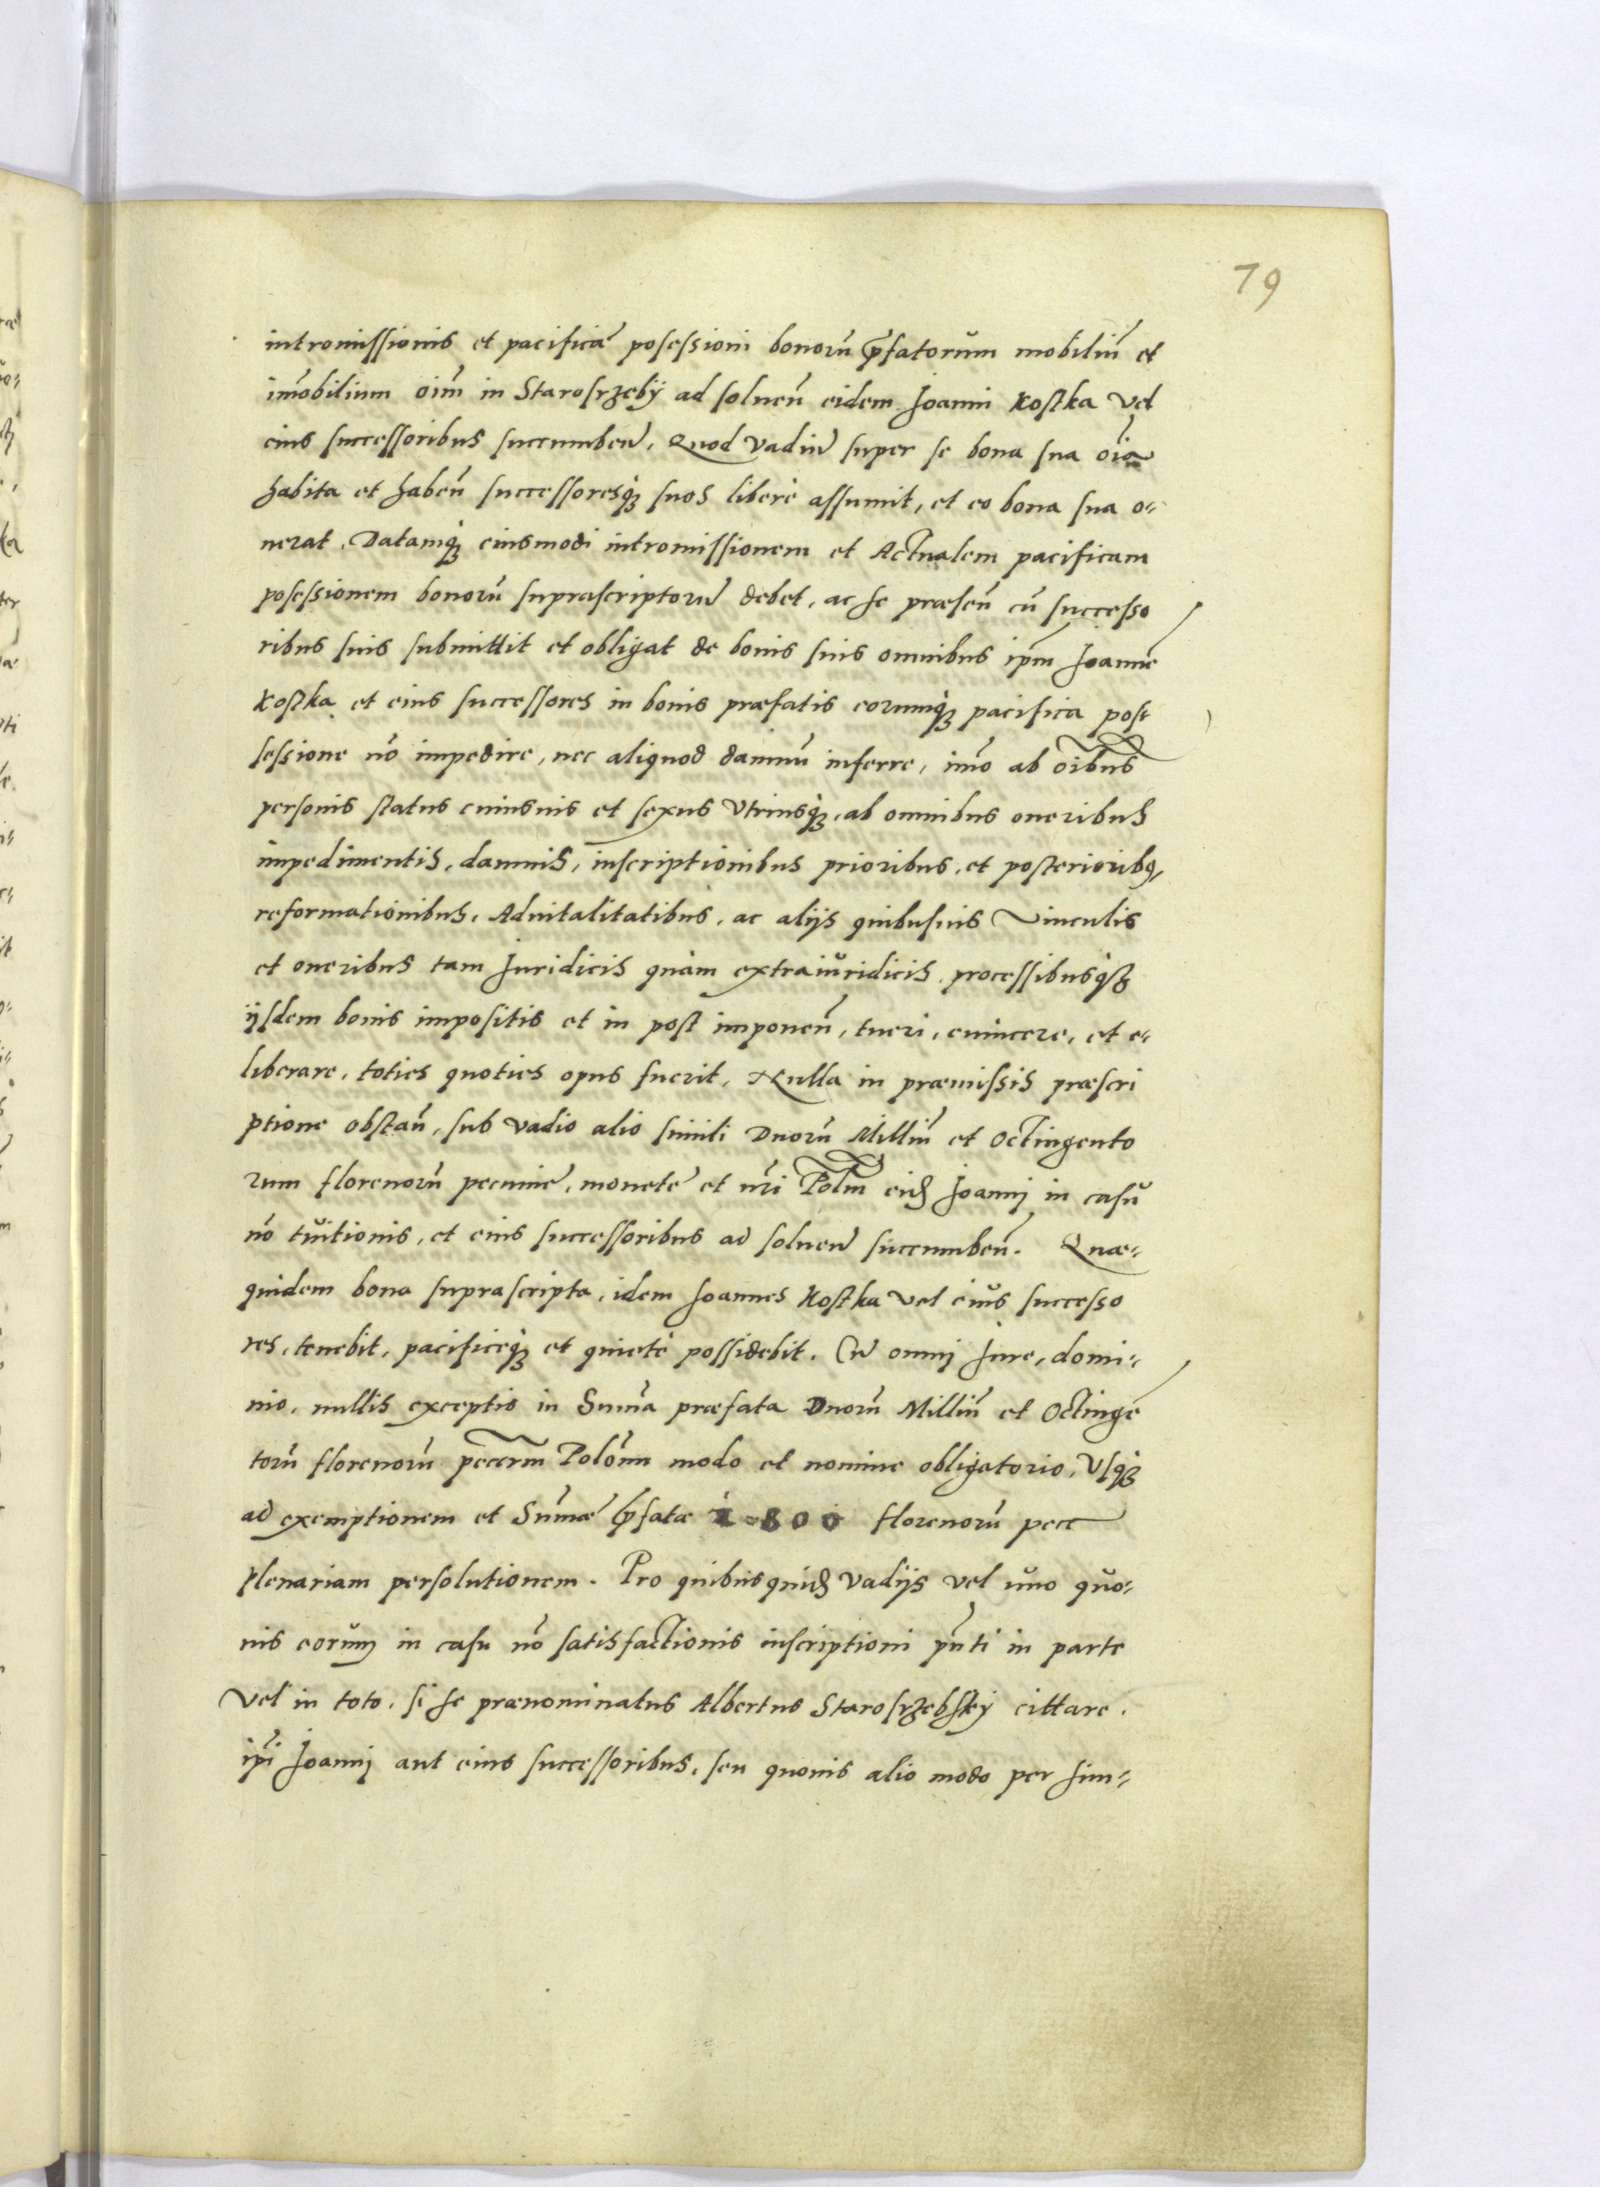 79
intromissionis et pacificã posessioni bonorũ p̃fatorum mobiliũ et
im̃obilium oim̃ in Starosrzeby ad soluen̄ eidem Joanni Kostka vel
eius successoribus succumben̄. Quod vadiũ super se bona sua oĩa
habita et haben̄ successoresq̀ȝ suos liberè assumit, et eo bona sua o=
nerat. Datamq̀ȝ eiusmodi intromissionem et Actualem pacificam
posessionem bonorũ suprascriptorũ debet, ac se præsen̄ cũ successo
ribus suis submittit et obligat de bonis suis omnibus ip̃m Joannẽ
Kostka et eius successores in bonis præfatis eorumq̀ȝ pacifica pos=
sessione nõ impedire, nec aliquod damnũ inferre, imõ ab oĩbus
personis status cuiusuis et sexus vtriusq̀ȝ, ab omnibus oneribus
impedimentis, damnis, inscriptionibus prioribus, et posterioribꝰ,
reformationibus, Aduitalitatibus, ac alijs quibusuis Vinculis
et oneribus tam Juridicis quàm extraiuridicis processibusq̀ȝ
ijsdem bonis impositis et in post imponen̄, tueri, euincere, et e=
liberare, toties quoties opus fuerit, Nulla in præmissis præscri
ptione obstan̄, sub vadio alio simili Duorũ Milliũ et Octingento
rum florenorũ pecuniæ, monetæ et nr̃i Polm̃ eidꝫ Joanni in casu
nõ tuitionis, et eius successoribus ad soluen̄ succumben̄. Quæ=
quidem bona suprascripta, idem Joannes Kostka vel eius successo
res, tenebit, pacificeq̀ȝ et quietè possidebit. Cũ omni Jure, domi=
nio, nullis exceptis in Sum̃a præfata Duorũ Milliũ et Octingẽ
torũ florenorũ peccrm̃ Polõnn modo et nomine obligatorio, Vsq̀ȝ
ad exemptionem et Sum̃æ p̃fatæ 2800 florenorũ pecc
plenariam persolutionem. Pro quibusquidꝫ vadijs vel uno quo=
uis eorum in casu nõ satisfactionis inscriptioni pñti in parte
Vel in toto, si se prænominatus Albertus Starosrzebsky cittare.
ip̃i Joanni aut eius successoribus, seu quouis alio modo per sim=